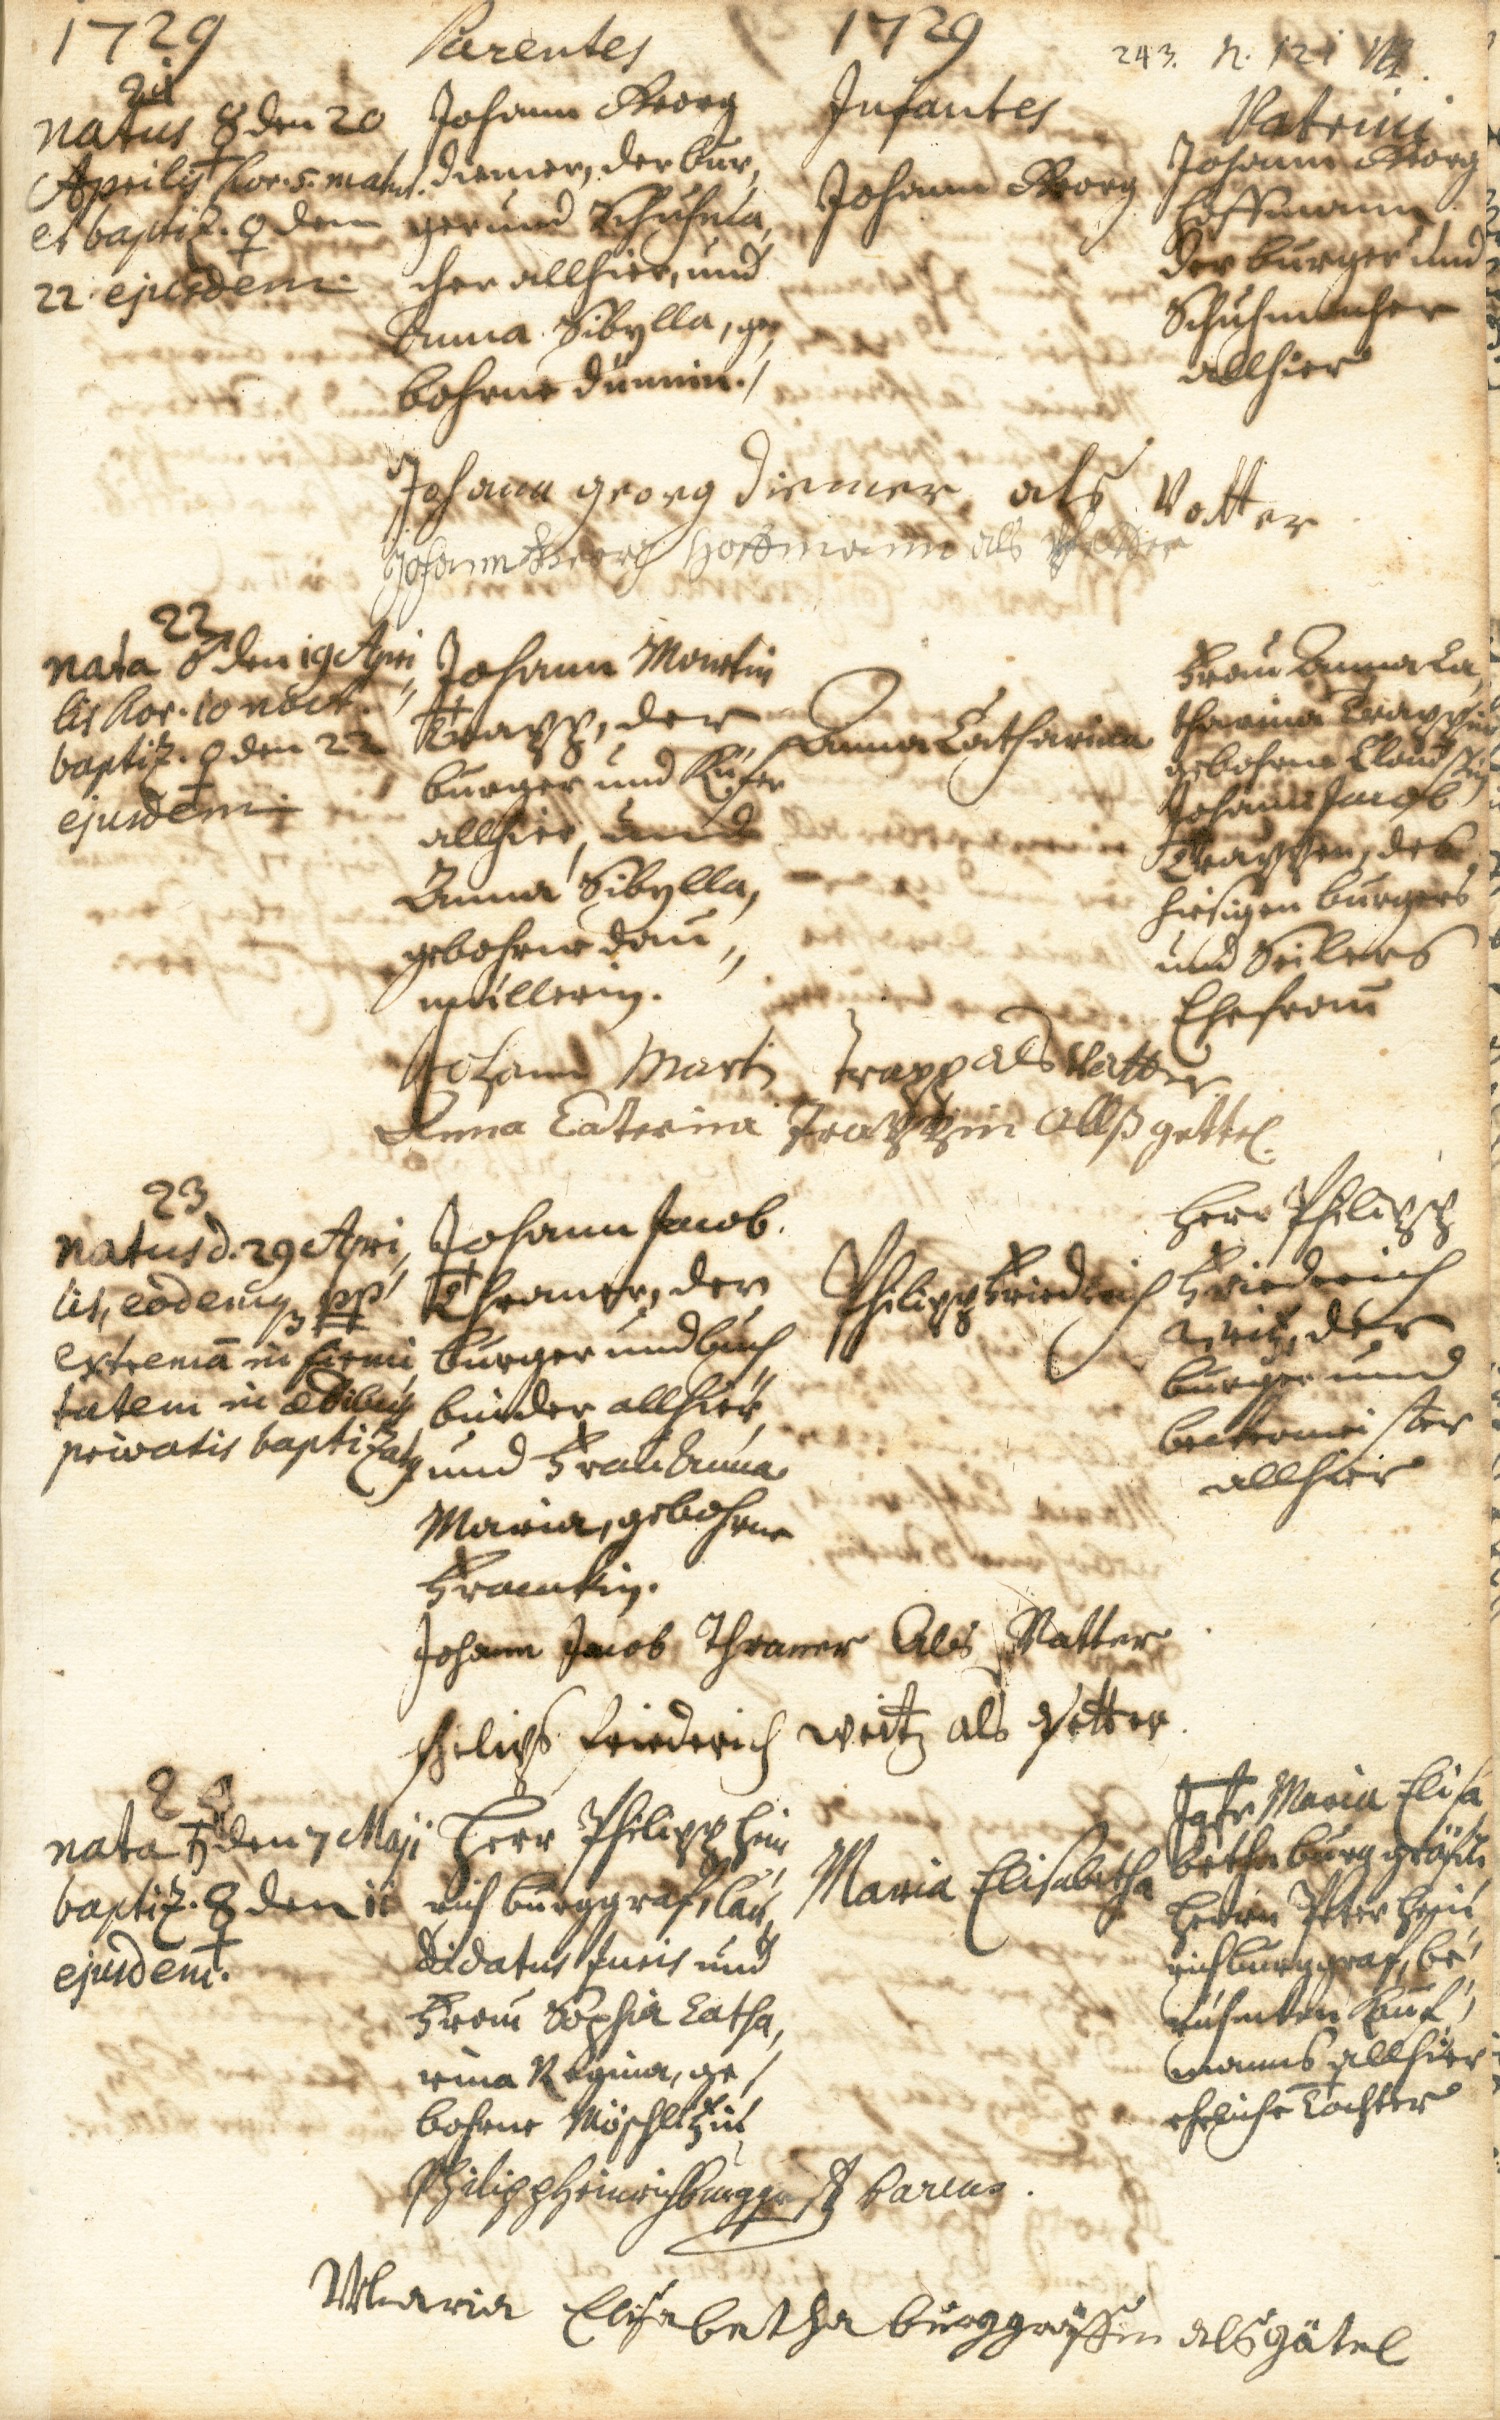 1729 Parentes 1729 243. N. 121
21
natus ☿ den 20
Aprilis hor. 5. matut.
et baptiz. ♀ dem
22 ejusdem.
Johann Georg
Diemer, der bur,
ger und Schuhma,
cher allhier, und
Anna Sibylla, ge,
bohrne Dünnin./
Infantes
Johann Georg
Patrini
Johann Georg
Hoffmann
der burger und
Schuhmacher
allhier
Johann georg Diemer, als Vatter
Johann Georg Hoffmann als Pfetter
22
nata ♂ den 19 Apri
lis hor. 10 noct.
baptiz. ♀ den 22
ejusdem
Johann Martin
Trapp, der
burger und Küfer
allhier, und
Anna Sibylla,
gebohrne Dau,,
müllerin.
Anna Catharina
Frau Anna Ca,
tharina Trappin
gebohrne
Johann Jacob
Trappen, des
hiesigen burgers
und Seilers
Ehefrau
Johann Marti Trapp als Vatter
Anna Caterina Trappin allß gettel.
23
natus d. 29 Apri,
lis, eodemq. pp
extremã in firmi
tatem in ædibus
privatis baptizatq
Johann Jacob
Thraner, der
burger und buch
binder allhier,
und Frau Anna
Maria, gebohrne
Franckin.
Philipp Friedrich
Herr Philipp
Friederich
Weitz, der
burger und
beckermeister
allhier
Johann Jacob Thraner Als Vatter
Philips friederich weitz als Pfetter.
24
nata ♄ den 7 Maji
baptiz. ☿ den 11
ejusdem.
Herr Philipp Hein
rich burggraf, Can,
didatus Juris und
Frau Sophia Catha,
rina Regina, ge/
bohrne Möschlitzin
Maria Elisabetha
Jgfr Maria Elisa
betha burggräfin
Herrn Peter Hein
rich burggraf, be
rühmten Kauf,
manns allhier
eheliche Tochter
Philipp Heinrich Burggraff Parens.
Maria Elisabetha burggräffin als gätel